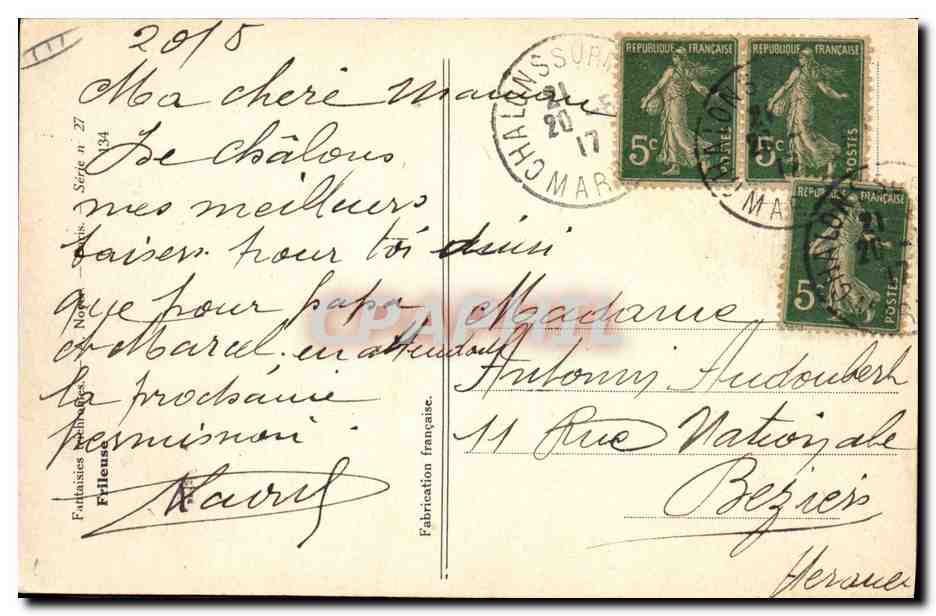 20/5
Ma chère Maman
De Châlons
mes meilleurs
baisers pour toi ainsi
que pour papa
et Marcel en attendant
la prochaine
permission
Raoul
Madame
Antonin Audoubert
11 Rue Nationale
Beziers
Herault
CHALONS SUR MAR
21
20 5
17
REPUBLIQUE FRANÇAISE
5c
POSTES
REPUBLIQUE FRANÇAISE
5c
POSTES
REPUBLIQUE FRANÇAISE
5c
POSTES
CPAPHIL
Fabrication française.
Série n° 27
134
Frileuse